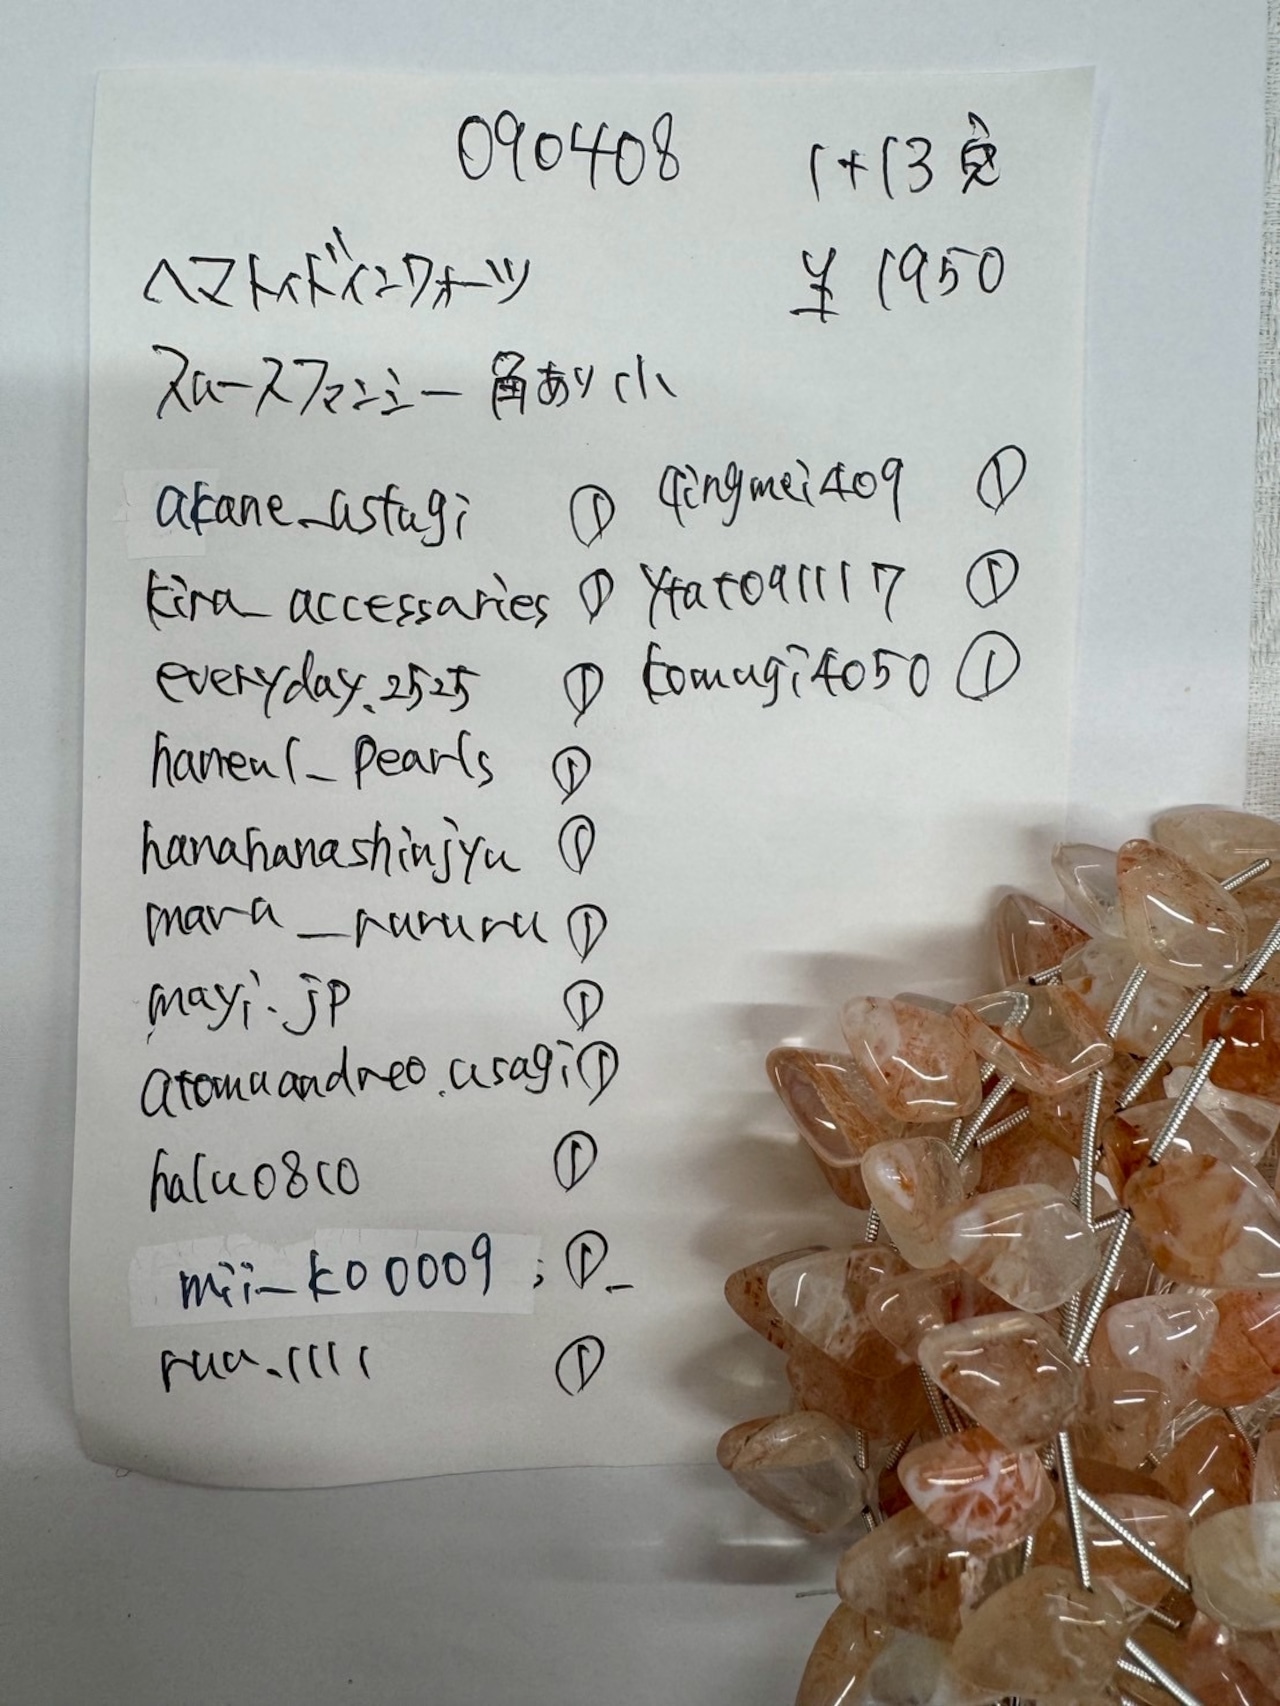 090408
1+13
¥ 1950
ヘマトイドインクォーツ
スムースファンシー 角あり 小
akane_ustugi ①
kira_accessaries ①
everyday.2525 ①
haneul_pearls ①
hanahanashinjyu ①
mara_rururu ①
mayi.jp ①
atomuandreo.usagi ①
halu0810 ①
mii_k00009 ①
ruu.1111 ①
qingmei409 ①
ytat091117 ①
komugi4050 ①